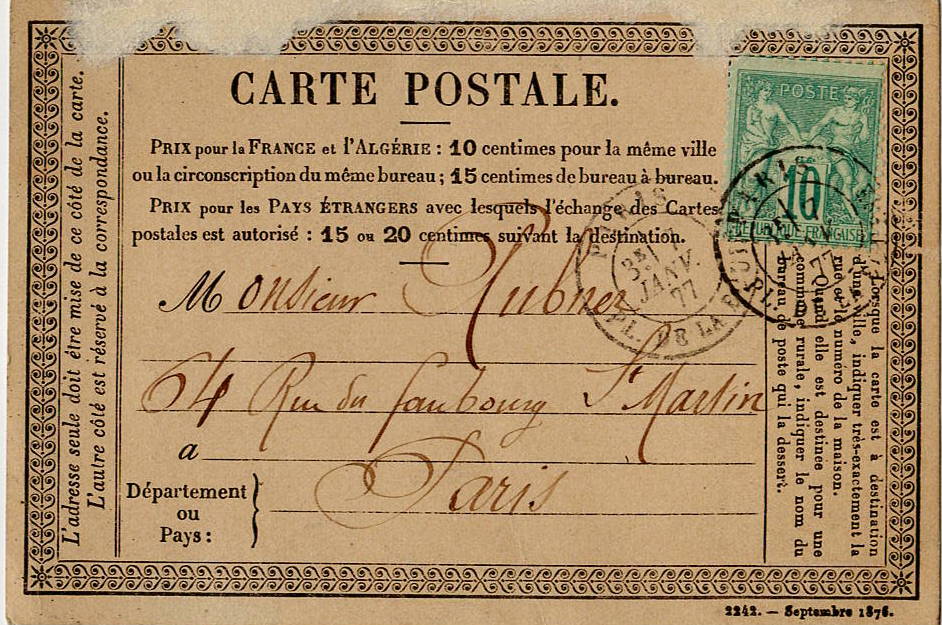 CARTE POSTALE.
PRIX pour la FRANCE et l'ALGÉRIE : 10 centimes pour la même ville
ou la circonscription du même bureau ; 15 centimes de bureau à bureau.
PRIX pour les PAYS ÉTRANGERS avec lesquels l'échange des Cartes
postales est autorisé : 15 ou 20 centimes suivant la destination.
Monsieur Rubner
64 Rue du faubourg St Martin
a
Paris
Département
ou
Pays :
L'adresse seule doit être mise de ce côté de la carte.
L'autre côté est réservé à la correspondance.
Lorsque la carte est à destination
d'une ville, indiquer très-exactement la
rue et le numéro de la maison.
Quand elle est destinée pour une
commune rurale, indiquer le nom du
bureau de poste qui la dessert.
POSTE
10
REPUBLIQUE FRANÇAISE
PARIS
3E
JANV.
77
PL. DE LA BOURSE
PARIS
77
PL. DE LA BOURSE
2242. — Septembre 1876.